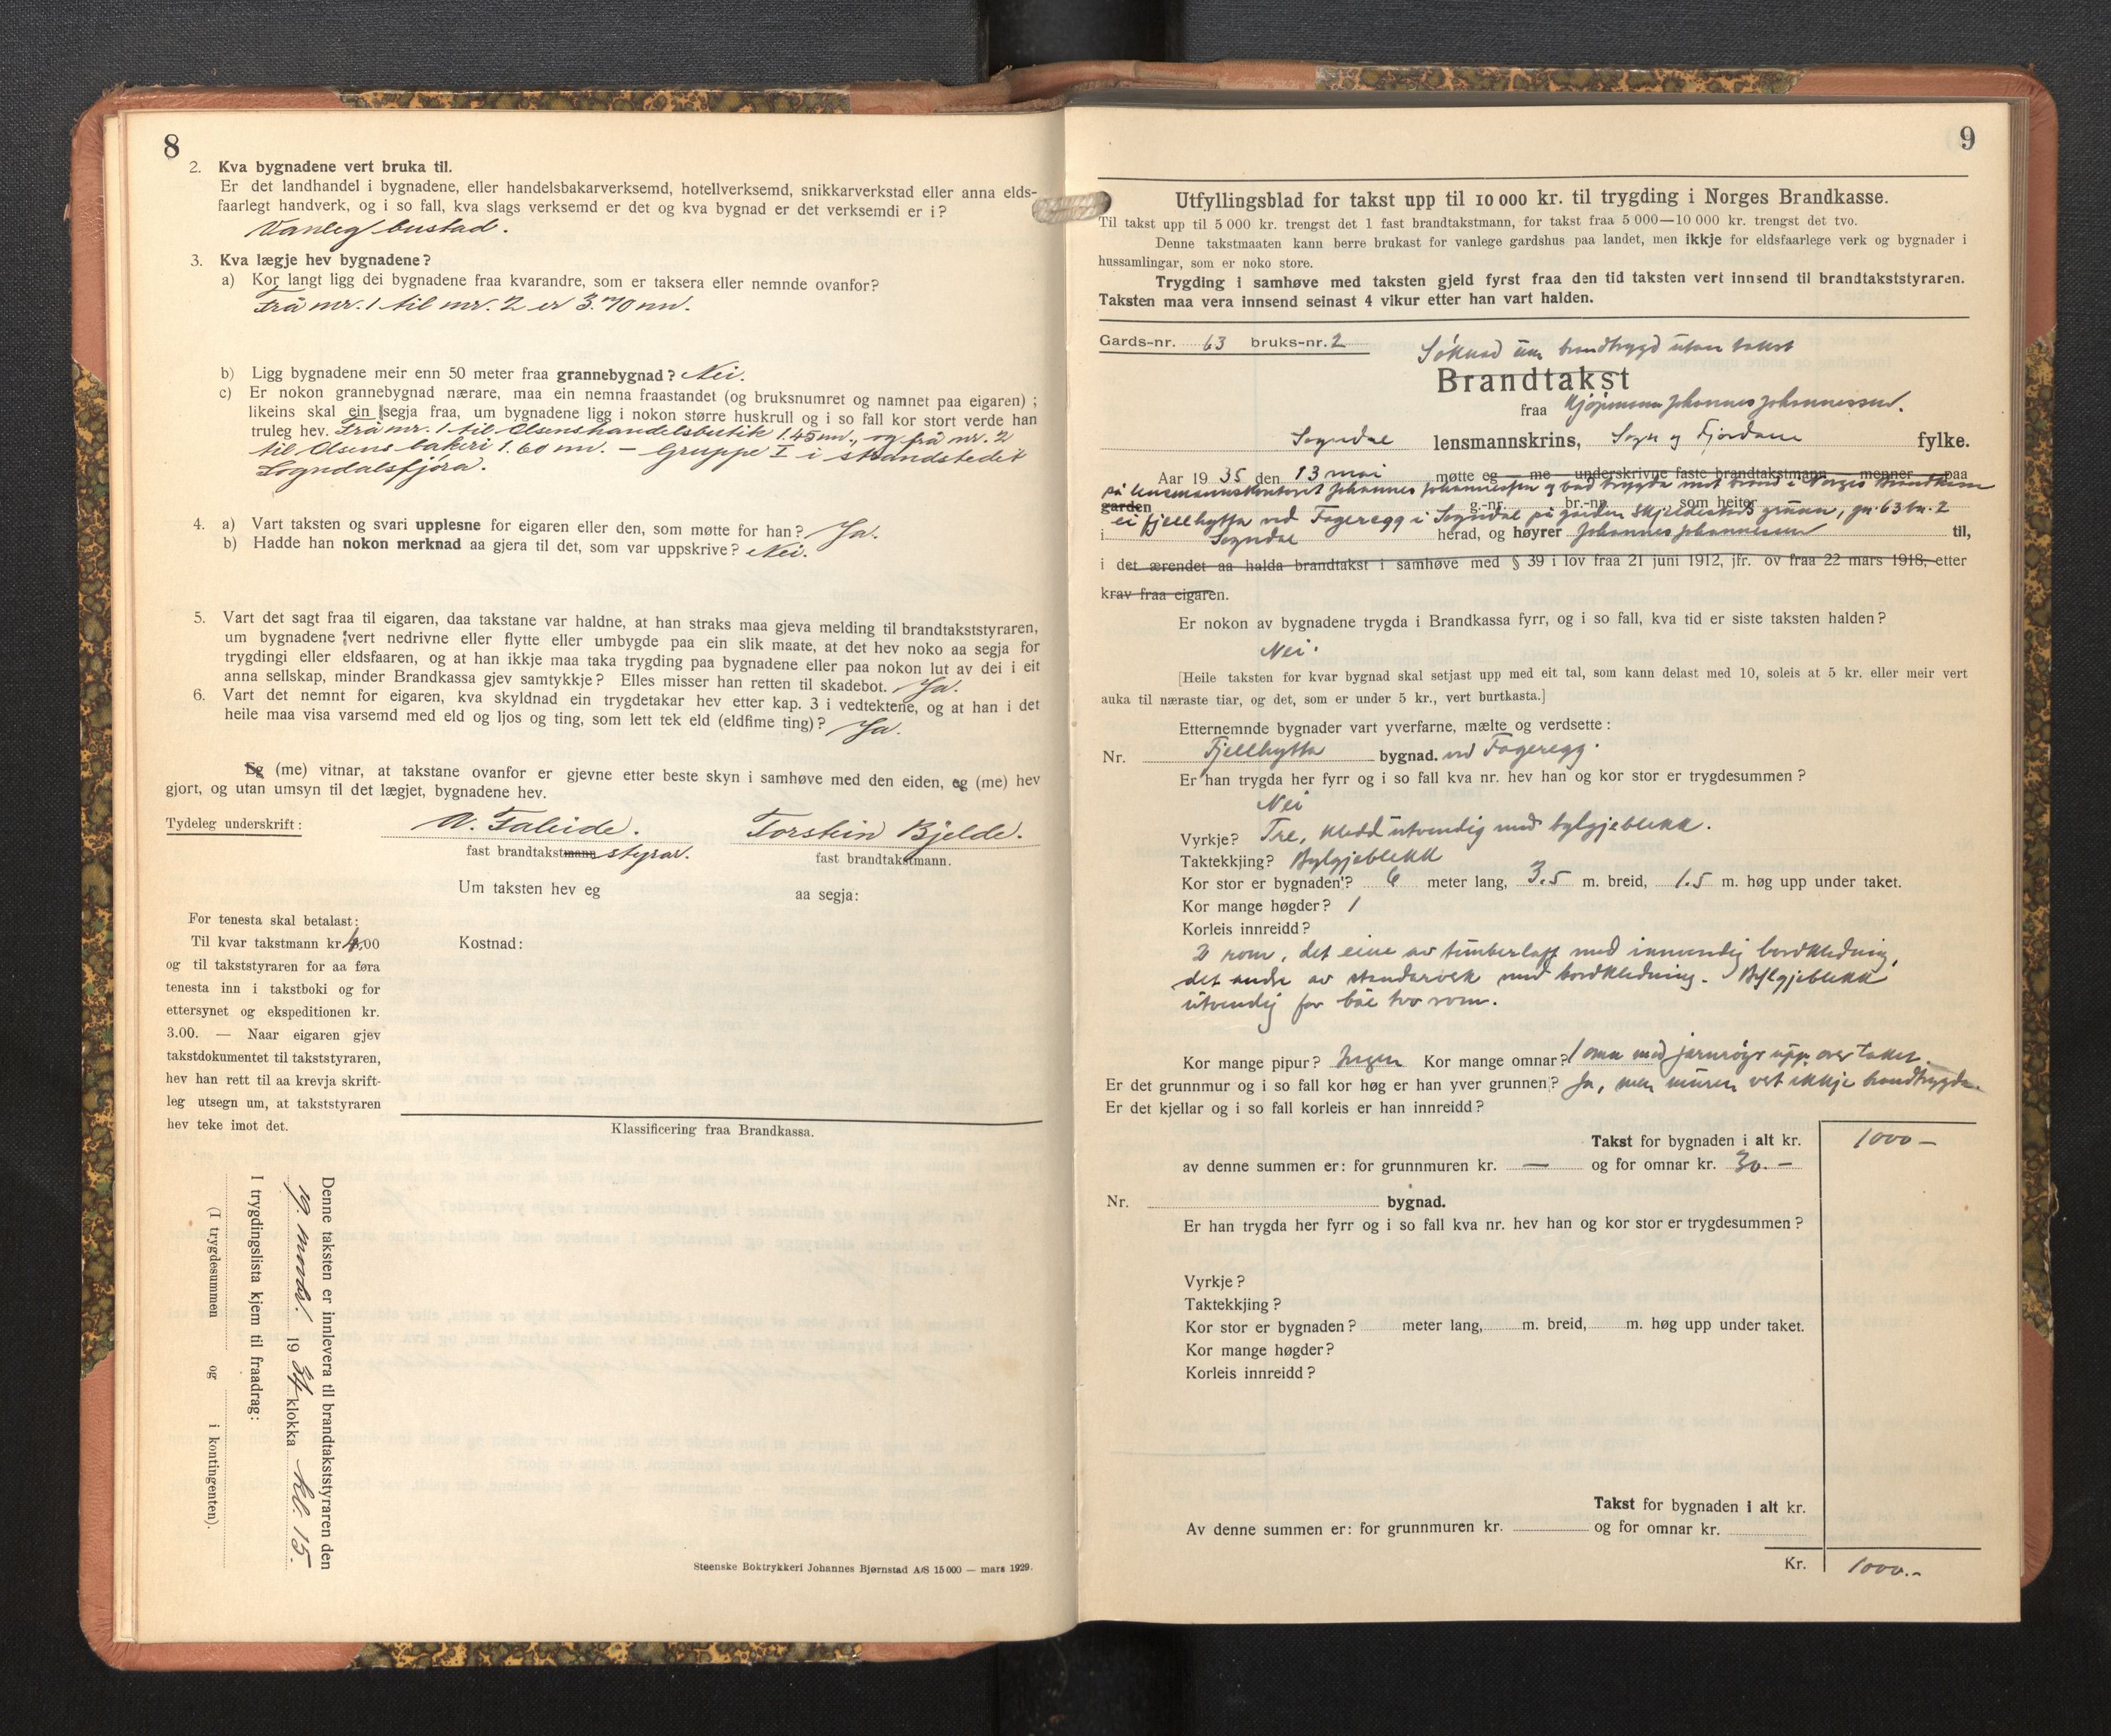 8
2. Kva bygnadene vert bruka til.
Er det landhandel i bygnadene, eller handelsbakarverksemd, hotellverksemd, snikkarverkstad eller anna elds-
faarlegt handverk, og i so fall, kva slags verksemd er det og kva bygnad er det verksemdi er i?
Vanleg bustad.
3. Kva lægje hev bygnadene?
a) Kor langt ligg dei bygnadene fraa kvarandre, som er taksera eller nemnde ovanfor?
Frå nr. 1 til nr. 2 er 3.70 m.
b) Ligg bygnadene meir enn 50 meter fraa grannebygnad? Nei.
c) Er nokon grannebygnad nærare, maa ein nemna fraastandet (og bruksnumret og namnet paa eigaren);
likeins skal ein segja fraa, um bygnadene ligg i nokon større huskrull og i so fall kor stort verde han
truleg hev. Frå nr. 1 til Olsens handelsbutik 1.45 m., og frå nr. 2
til Olsens bakeri 1.60 m. — Gruppe I i strandstedet
Sogndalsfjøra.
4. a) Vart taksten og svari upplesne for eigaren eller den, som møtte for han? Ja.
b) Hadde han nokon merknad aa gjera til det, som var uppskrive? Nei.
5. Vart det sagt fraa til eigaren, daa takstane var haldne, at han straks maa gjeva melding til brandtakststyraren,
um bygnadene vert nedrivne eller flytte eller umbygde paa ein slik maate, at det hev noko aa segja for
trygdingi eller eldsfaaren, og at han ikkje maa taka trygding paa bygnadene eller paa nokon lut av dei i eit
anna sellskap, minder Brandkassa gjev samtykkje? Elles misser han retten til skadebot. Ja.
6. Vart det nemnt for eigaren, kva skyldnad ein trygdetakar hev etter kap. 3 i vedtektene, og at han i det
heile maa visa varsemd med eld og ljos og ting, som lett tek eld (eldfime ting)? Ja.
Eg (me) vitnar, at takstane ovanfor er gjevne etter beste skyn i samhøve med den eiden, eg (me) hev
gjort, og utan umsyn til det lægjet, bygnadene hev.
Tydeleg underskrift: A. Faleide. Torstein Bjelde.
fast brandtakstmann styrar. fast brandtakstmann.
Um taksten hev eg aa segja:
For tenesta skal betalast:
Til kvar takstmann kr. 4.00
og til takststyraren for aa føra
tenesta inn i takstboki og for
ettersynet og ekspeditionen kr.
3.00. — Naar eigaren gjev
takstdokumentet til takststyraren,
hev han rett til aa krevja skrift-
leg utsegn um, at takststyraren
hev teke imot det.
Kostnad:
Klassificering fraa Brandkassa.
Denne taksten er innlevera til brandtakststyraren den
9. novbr. 1934 klokka kl. 15.
I trygdingslista kjem til fraadrag:
(I trygdesummen og i kontingenten).
Steenske Boktrykkeri Johannes Bjørnstad A/S 15 000 — mars 1929.
9
Utfyllingsblad for takst upp til 10 000 kr. til trygding i Norges Brandkasse.
Til takst upp til 5 000 kr. trengst det 1 fast brandtakstmann, for takst fraa 5 000—10 000 kr. trengst det tvo.
Denne takstmaaten kann berre brukast for vanlege gardshus paa landet, men ikkje for eldsfaarlege verk og bygnader i
hussamlingar, som er noko store.
Trygding i samhøve med taksten gjeld fyrst fraa den tid taksten vert innsend til brandtakststyraren.
Taksten maa vera innsend seinast 4 vikur etter han vart halden.
Gards-nr. 63 bruks-nr. 2
Søknad um brandtrygd utan takst
Brandtakst
fraa Kjøpmann Johannes Johannessen.
Sogndal lensmannskrins, Sogn og Fjordane fylke.
Aar 1935 den 13 mai møtte eg me underskrivne faste brandtakstmann menner paa
på lensmannskontoret Johannes Johannessen og bad trygda mot brand i Norges Brandkasse
garden g.-nr. br.-nr. som heiter
ei fjellhytta ved Fageregg i Sogndal på garden Skjeldestads grunn, gn. 63 bn. 2
i Sogndal herad, og høyrer Johannes Johannessen til,
i det ærendet aa halda brandtakst i samhøve med § 39 i lov fraa 21 juni 1912, jfr. ov fraa 22 mars 1918, etter
krav fraa eigaren.
Er nokon av bygnadene trygda i Brandkassa fyrr, og i so fall, kva tid er siste taksten halden?
Nei.
[Heile taksten for kvar bygnad skal setjast upp med eit tal, som kann delast med 10, soleis at 5 kr. eller meir vert
auka til næraste tiar, og det, som er under 5 kr., vert burtkasta.]
Etternemnde bygnader vart yverfarne, mælte og verdsette:
Nr. Fjellhytta bygnad. ved Fageregg.
Er han trygda her fyrr og i so fall kva nr. hev han og kor stor er trygdesummen?
Nei
Vyrkje? Tre, kledd utvendig med bylgjeblekk.
Taktekkjing? Bylgjeblekk
Kor stor er bygnaden? 6 meter lang, 3.5 m. breid, 1.5 m. høg upp under taket.
Kor mange høgder? 1
Korleis innreidd?
2 rom, det eine av timberlaft med innvendig bordkledning,
det andre av standarverk med bordkledning. Bylgjeblekk
utvendig for båe tvo rom.
Kor mange pipur? Ingen Kor mange omnar? 1 omn med jarnrøyr upp over taket.
Er det grunnmur og i so fall kor høg er han yver grunnen? Ja, men muren vert ikkje brandtrygda.
Er det kjellar og i so fall korleis er han innreidd?
Takst for bygnaden i alt kr. 1000 —
av denne summen er: for grunnmuren kr. — og for omnar kr. 30.—
Nr. bygnad.
Er han trygda her fyrr og i so fall kva nr. hev han og kor stor er trygdesummen?
Vyrkje?
Taktekkjing?
Kor stor er bygnaden? meter lang, m. breid, m. høg upp under taket.
Kor mange høgder?
Korleis innreidd?
Takst for bygnaden i alt kr.
Av denne summen er: for grunnmuren kr. og for omnar kr.
Kr. 1000.-